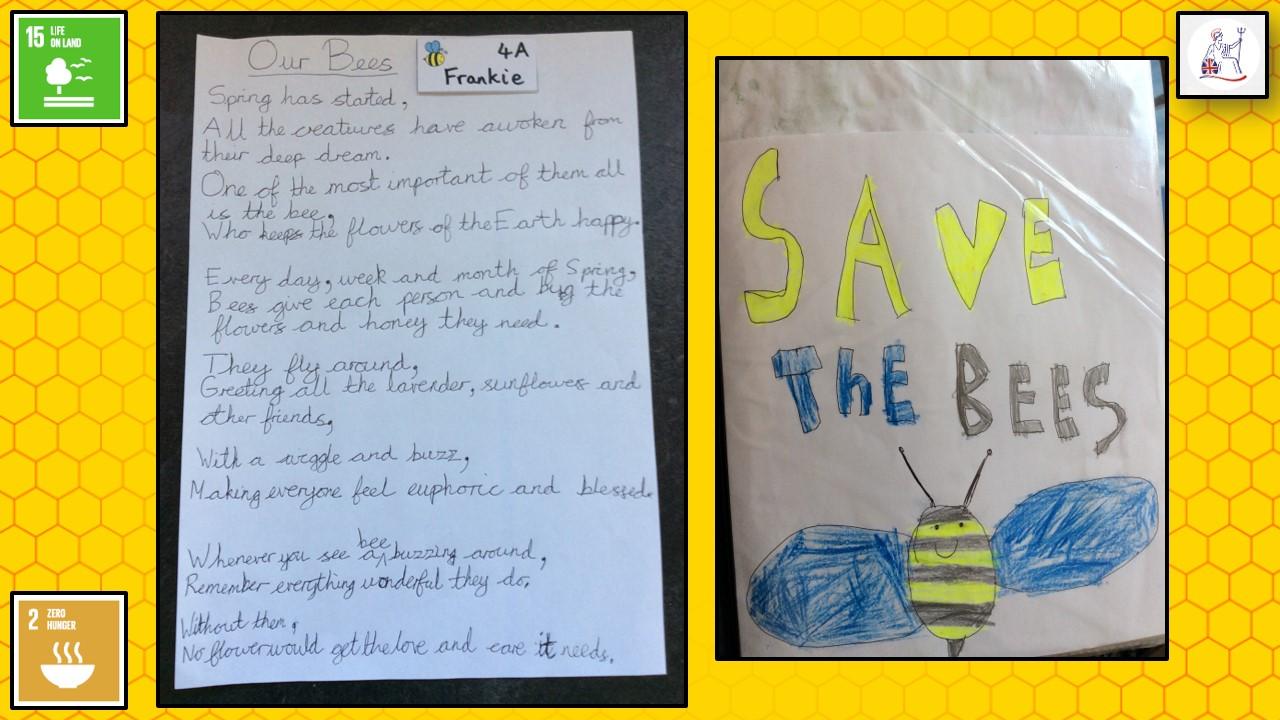 15 LIFE
ON LAND
Our Bees
4A
Frankie
Spring has started,
All the creatures have awoken from
their deep dream.
One of the most important of them all
is the bee,
Who keeps the flowers of the Earth happy.
Every day, week and month of Spring,
Bees give each person and bug the
flowers and honey they need.
They fly around,
Greeting all the lavender, sunflowers and
other friends,
With a wiggle and buzz,
Making everyone feel euphoric and blessed.
Whenever you see a bee buzzing around,
Remember everything wonderful they do.
Without them,
No flower would get the love and care it needs.
2 ZERO
HUNGER
SAVE
ThE BEES